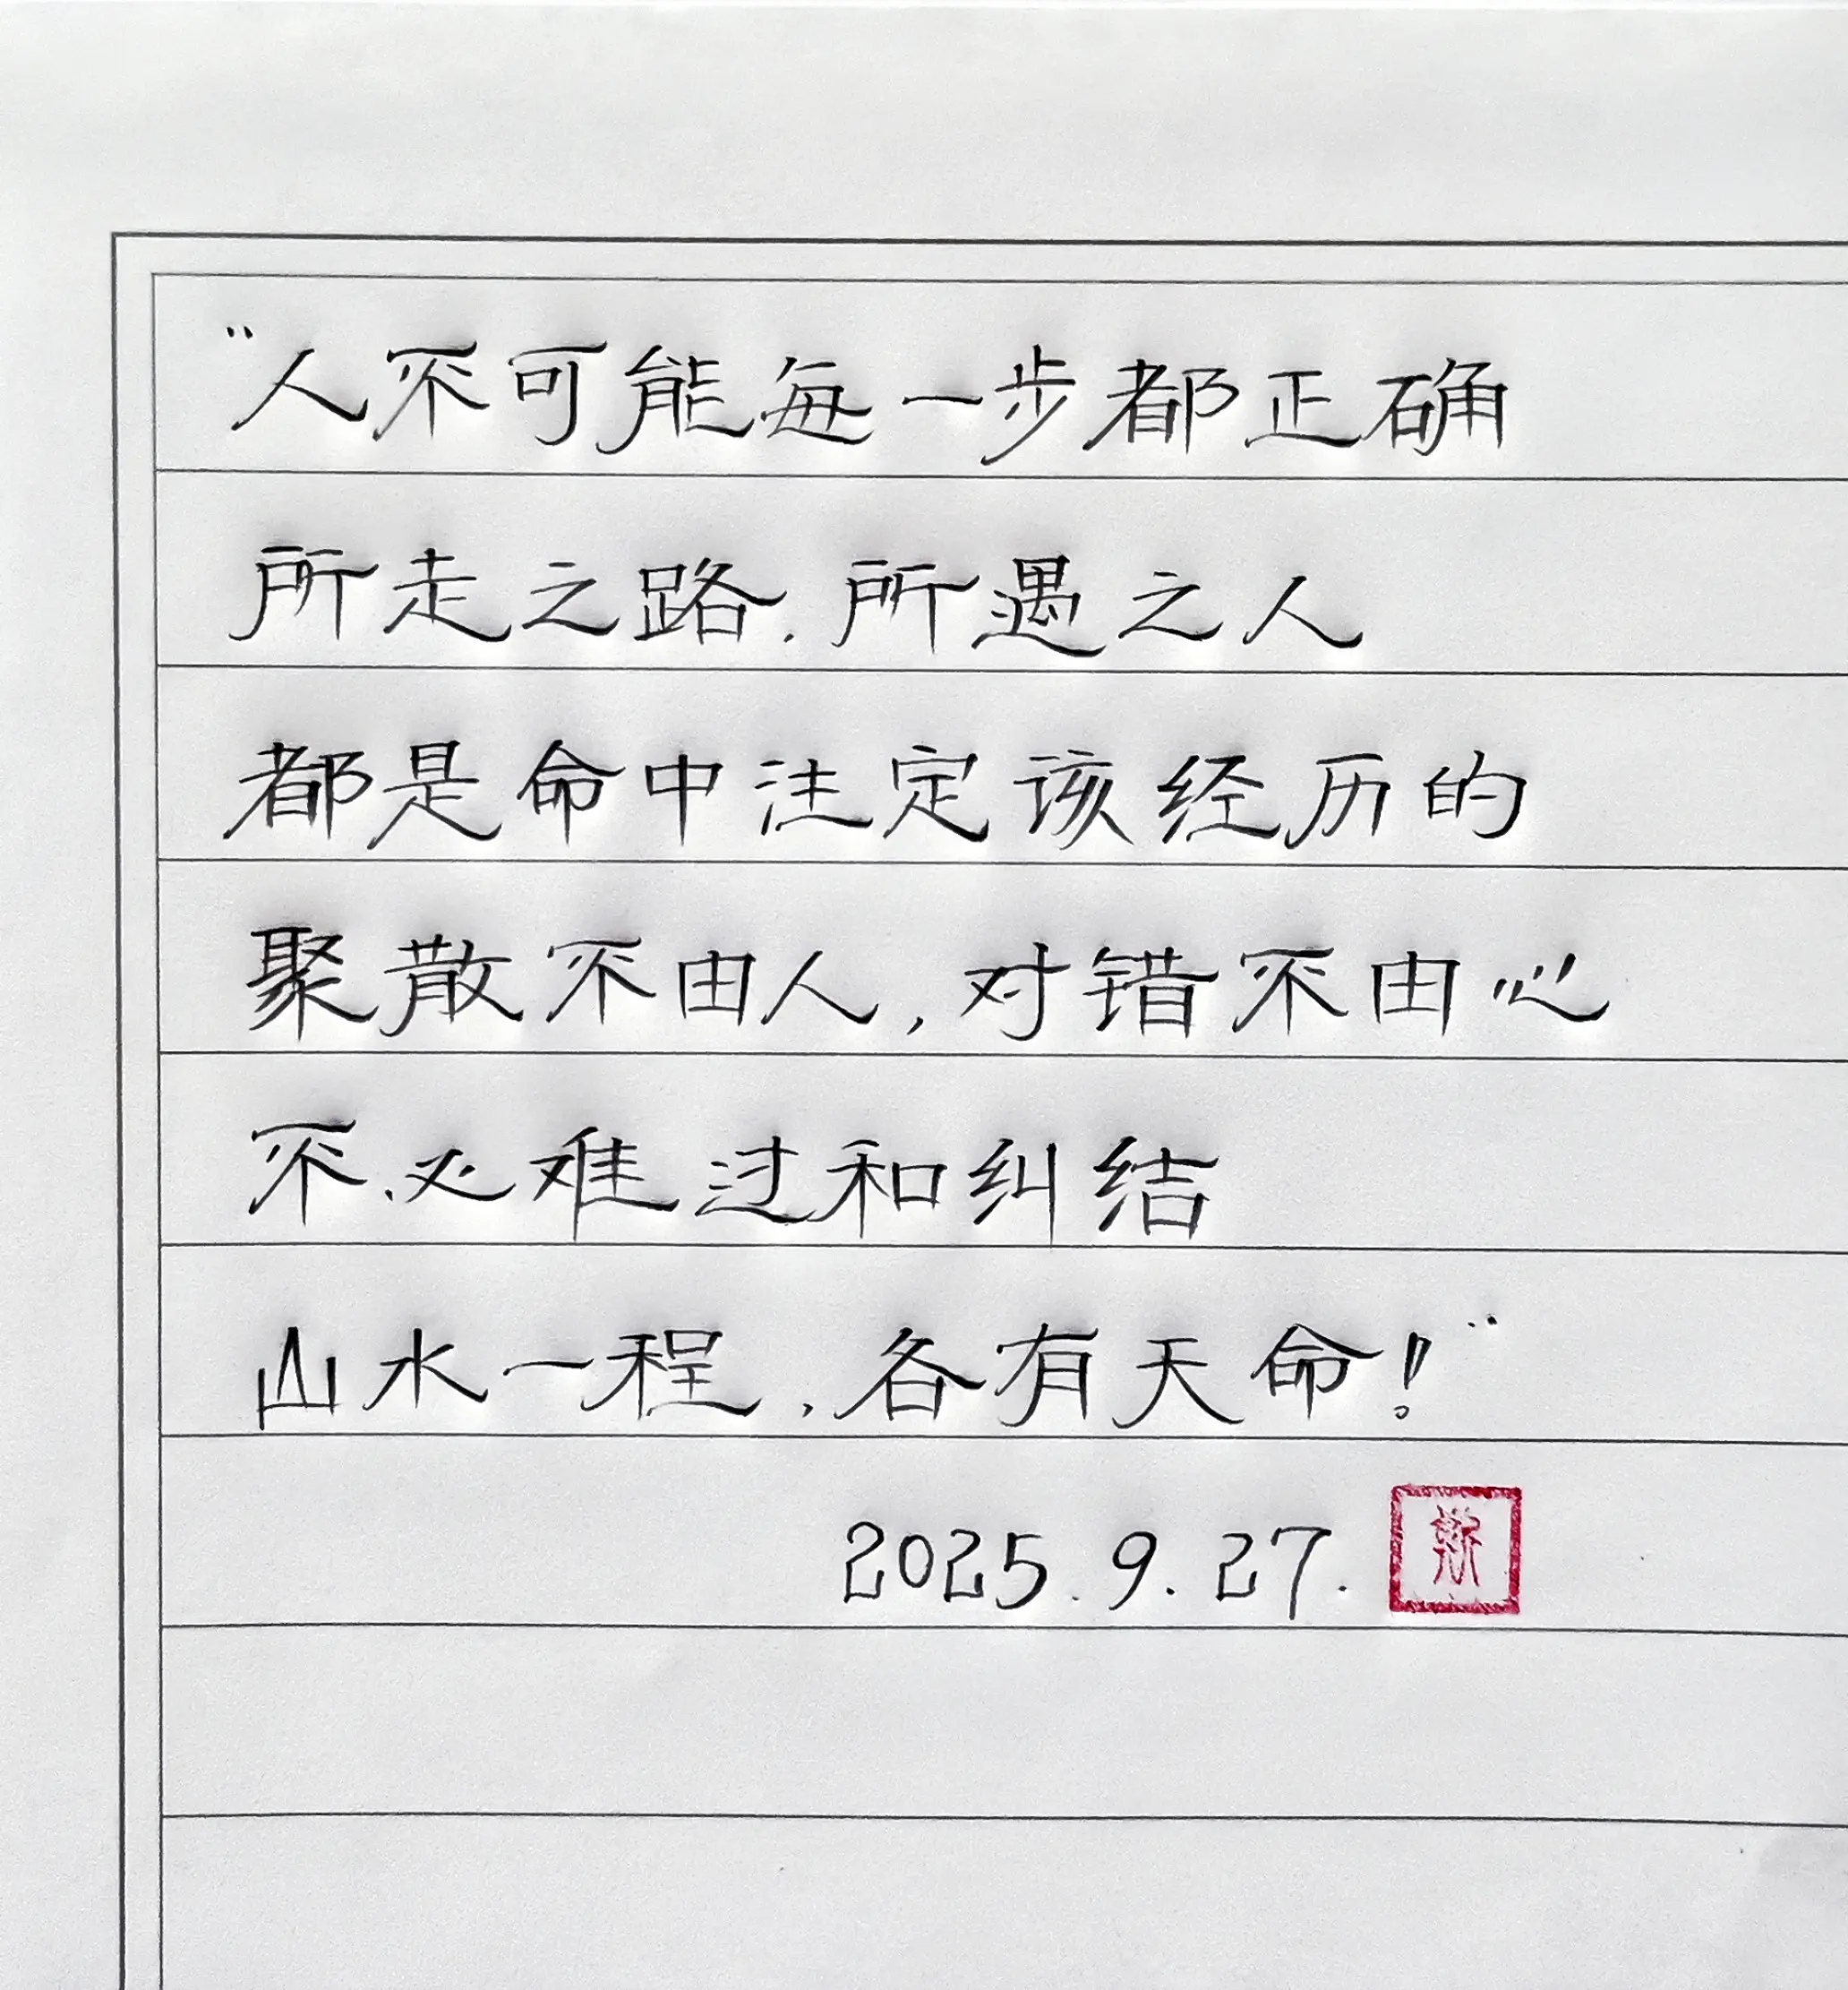 “人不可能每一步都正确
所走之路.所遇之人
都是命中注定该经历的
聚散不由人,对错不由心
不必难过和纠结
山水一程,各有天命!”
2025.9.27.